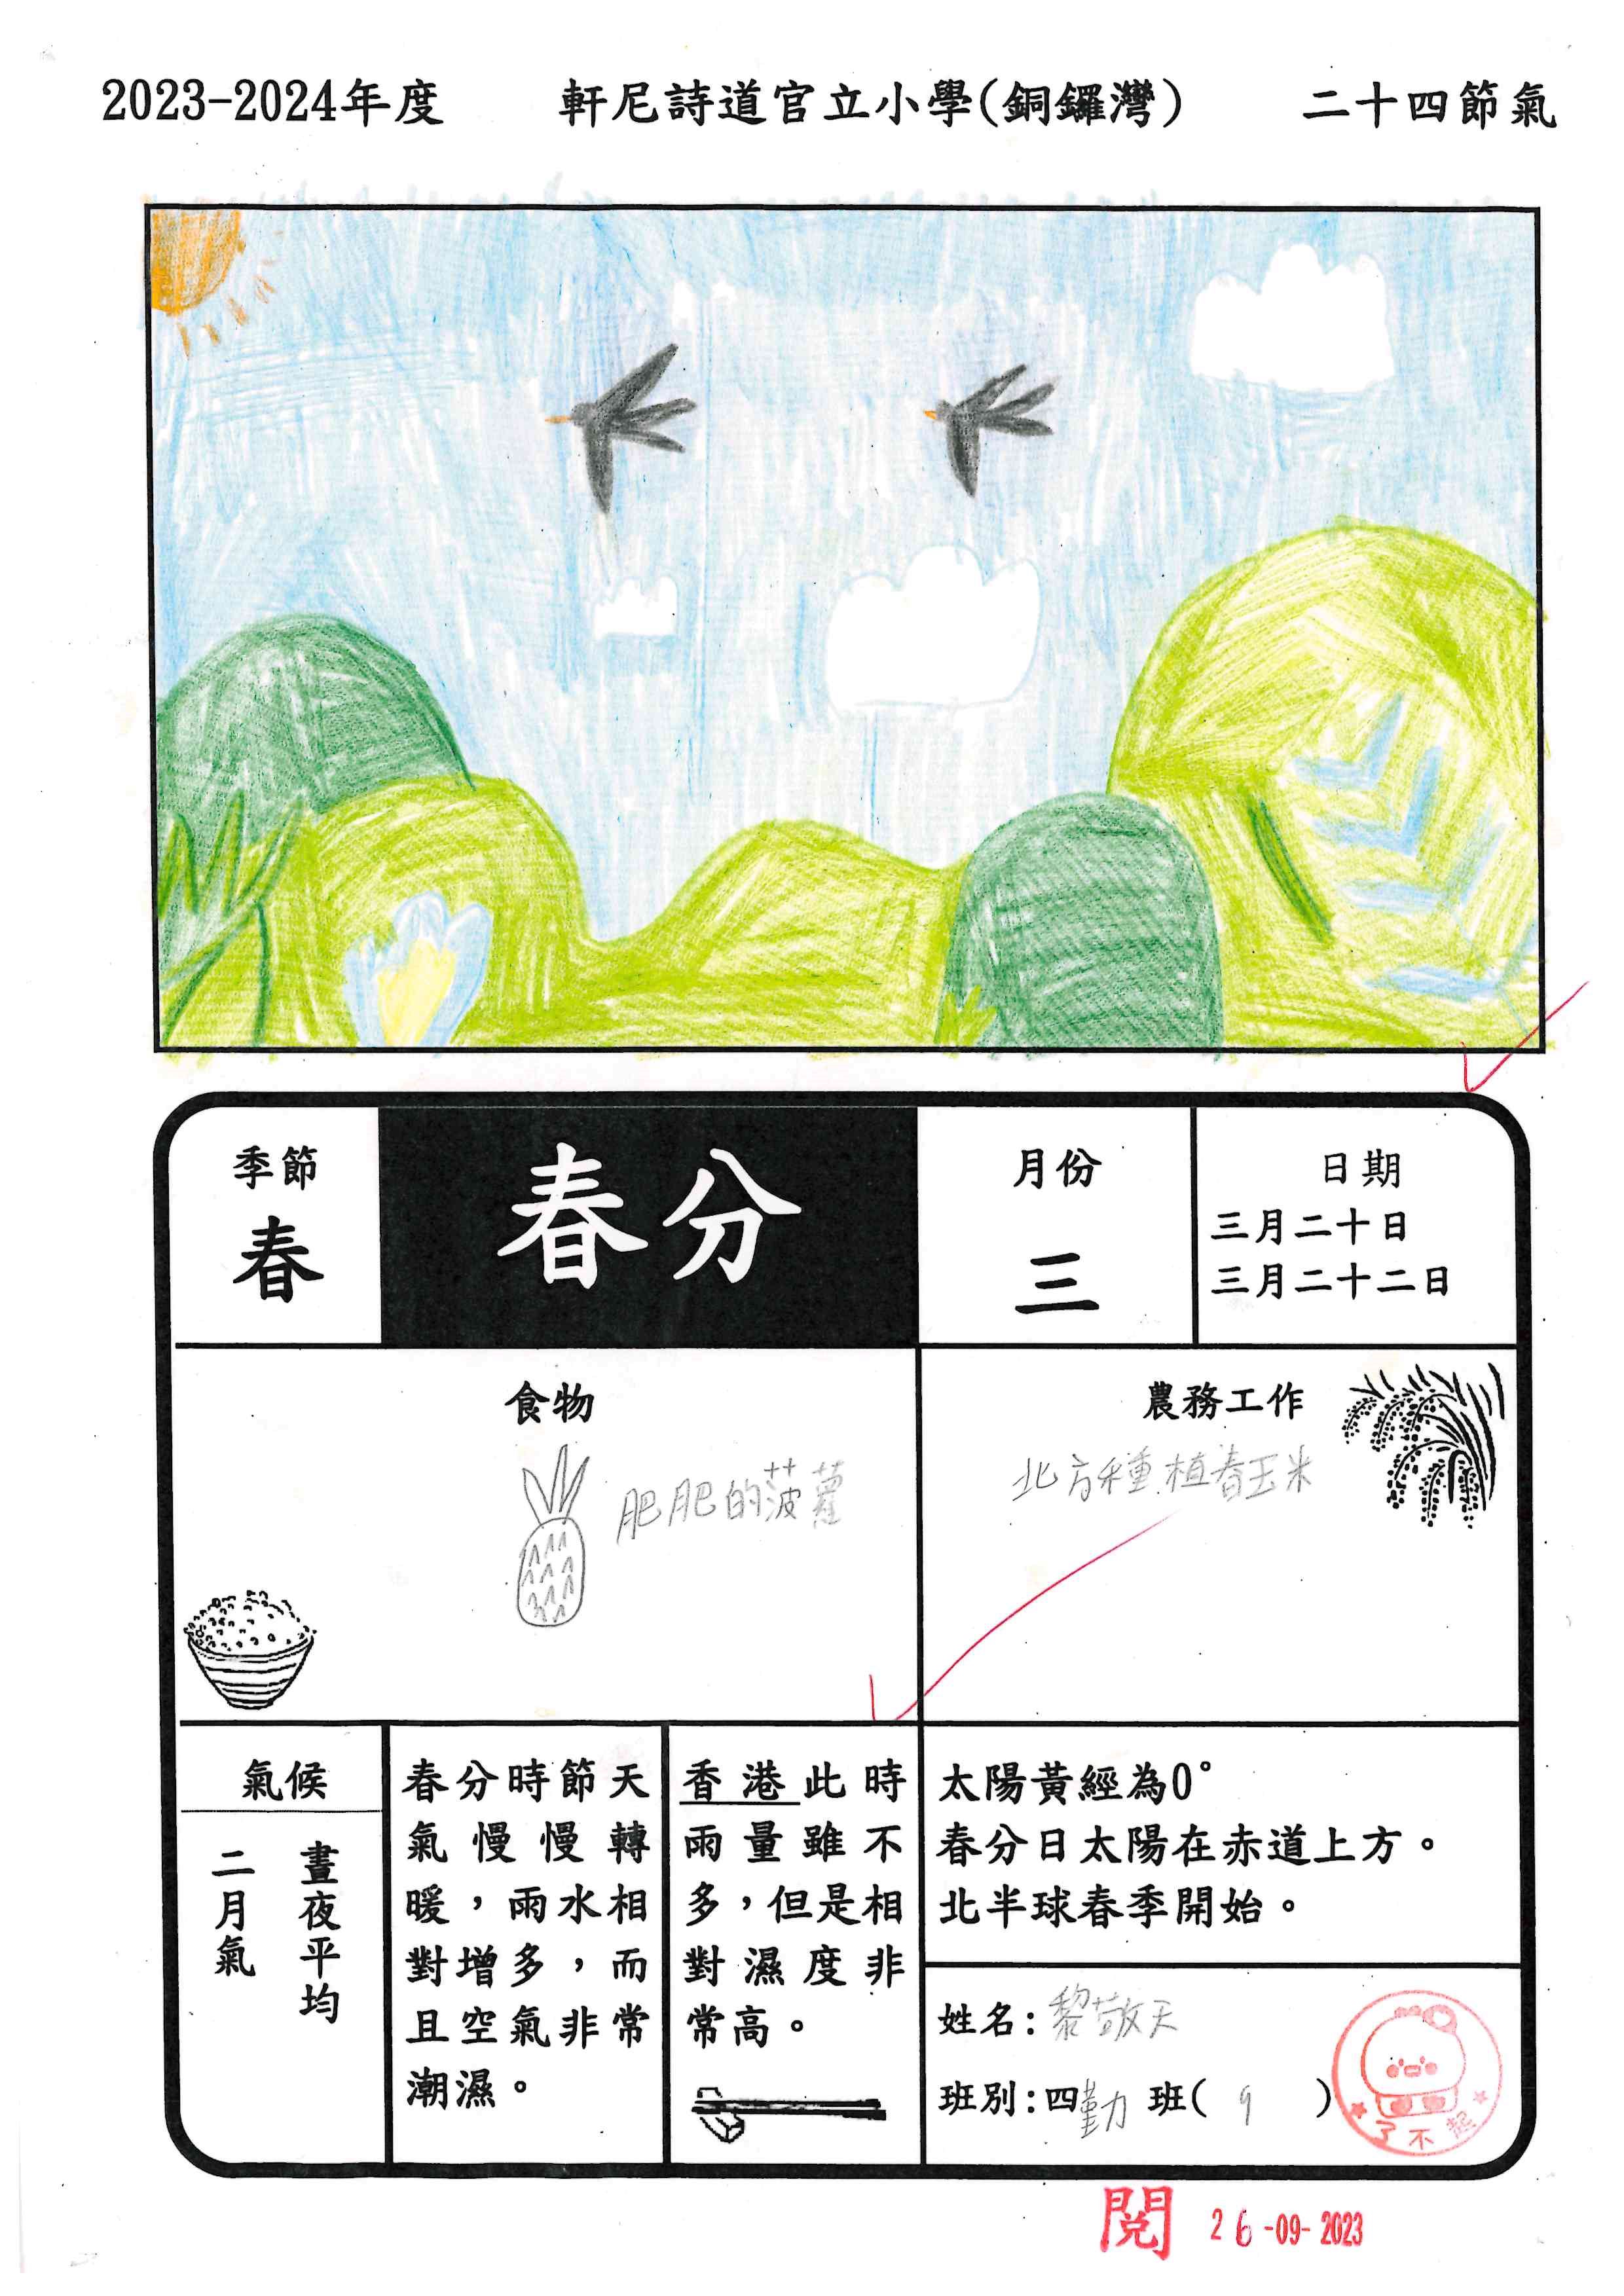 2023-2024年度 軒尼詩道官立小學(銅鑼灣) 二十四節氣
季節
春
春分
月份
三
日期
三月二十日
三月二十二日
食物
肥肥的菠蘿
農務工作
北方種植春玉米
氣候
晝夜平均
二月氣
春分時節天
氣慢慢轉
暖，雨水相
對增多，而
且空氣非常
潮濕。
香港此時
雨量雖不
多，但是相
對濕度非
常高。
太陽黃經為0°
春分日太陽在赤道上方。
北半球春季開始。
姓名:黎敬天
班別:四勤班(9)
了不起
閱 26-09-2023